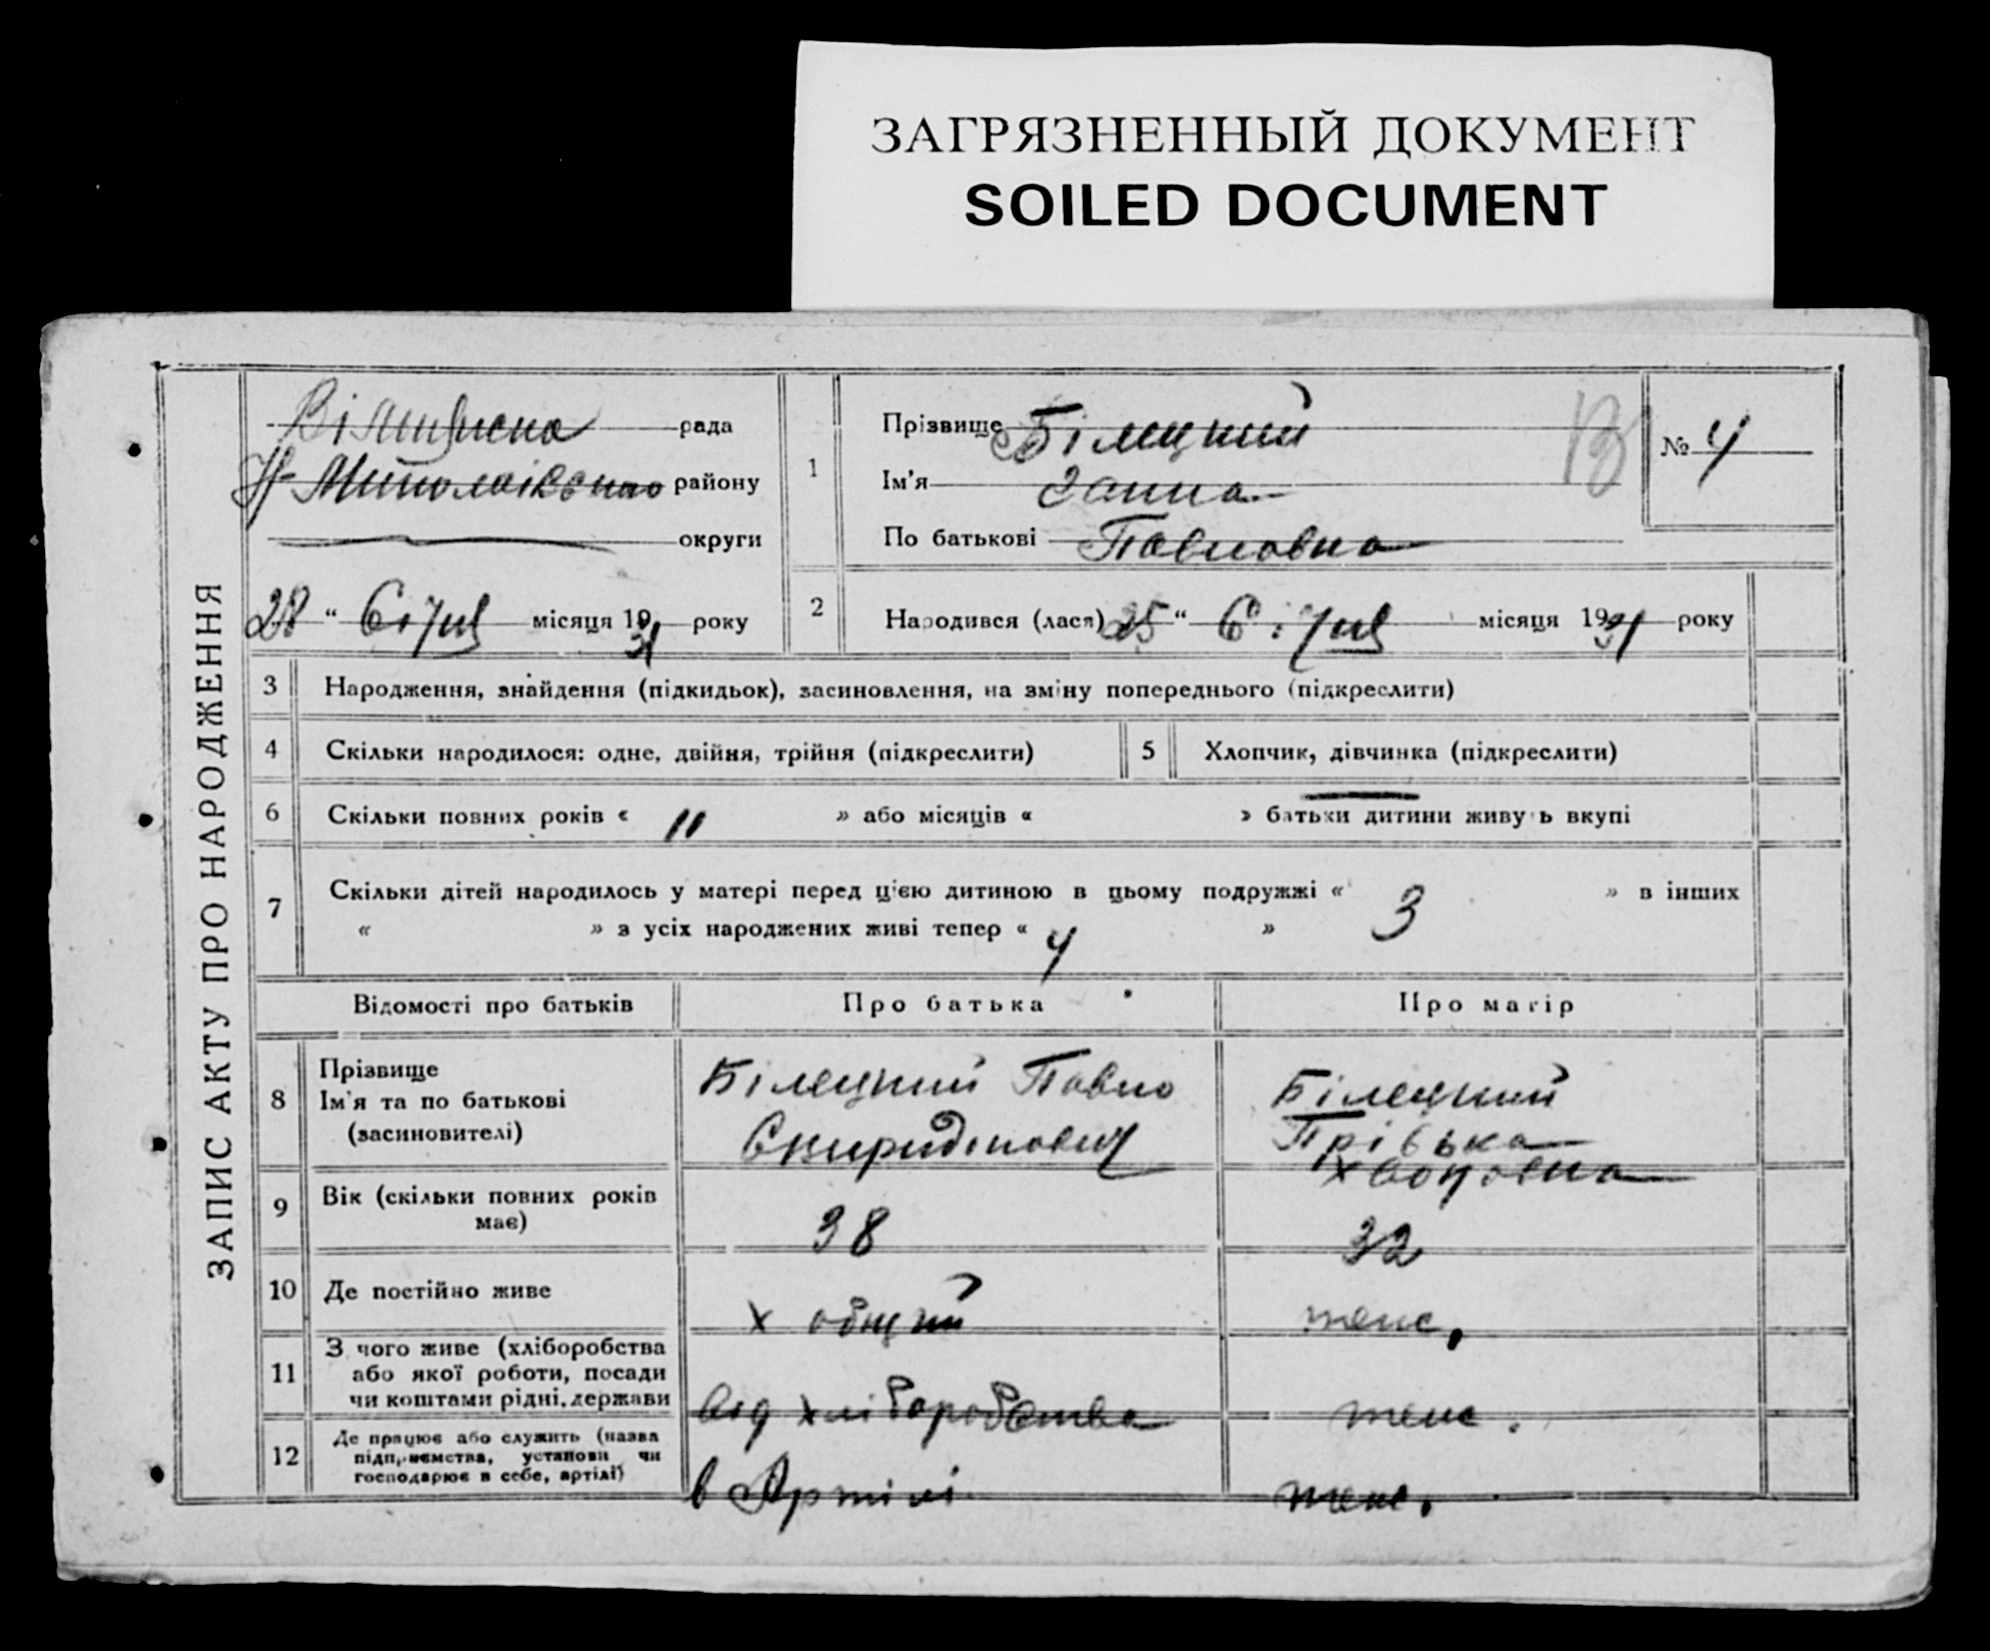 ЗАГРЯЗНЕННЫЙ ДОКУМЕНТ
SOILED DOCUMENT
ЗАПИС АКТУ ПРО НАРОДЖЕННЯ
рада
району
округи
28 " Січня місяця 1931 року
1 Прізвище Білецкий
Ім'я Ганна
По батькові Павловна
№ 4
2 Народився (лася) 25 " Січня місяця 1931 року
3 Народження, знайдення (підкидьок), засиновлення, на зміну попереднього (підкреслити)
4 Скільки народилося: одне, двійня, трійня (підкреслити)
5 Хлопчик, дівчинка (підкреслити)
6 Скільки повних років « 11 » або місяців « » батьки дитини живуть вкупі
7 Скільки дітей народилось у матері перед цією дитиною в цьому подружжі « 3 » в інших
« » з усіх народжених живі тепер « 4 »
Відомості про батьків Про батька Про матір
8 Прізвище
Ім'я та по батькові
(засиновителі)
Білецкий Павло
Спиридонович
Білецкий
Прівька
9 Вік (скільки повних років
має)
38 32
10 Де постійно живе
х теж.
11 З чого живе (хліборобства
або якої роботи, посади
чи коштами рідні, держави
від хліборобства теж.
12 Де працює або служить (назва
підприємства, установи чи
господарює в себе, артілі)
в Артілі теж.